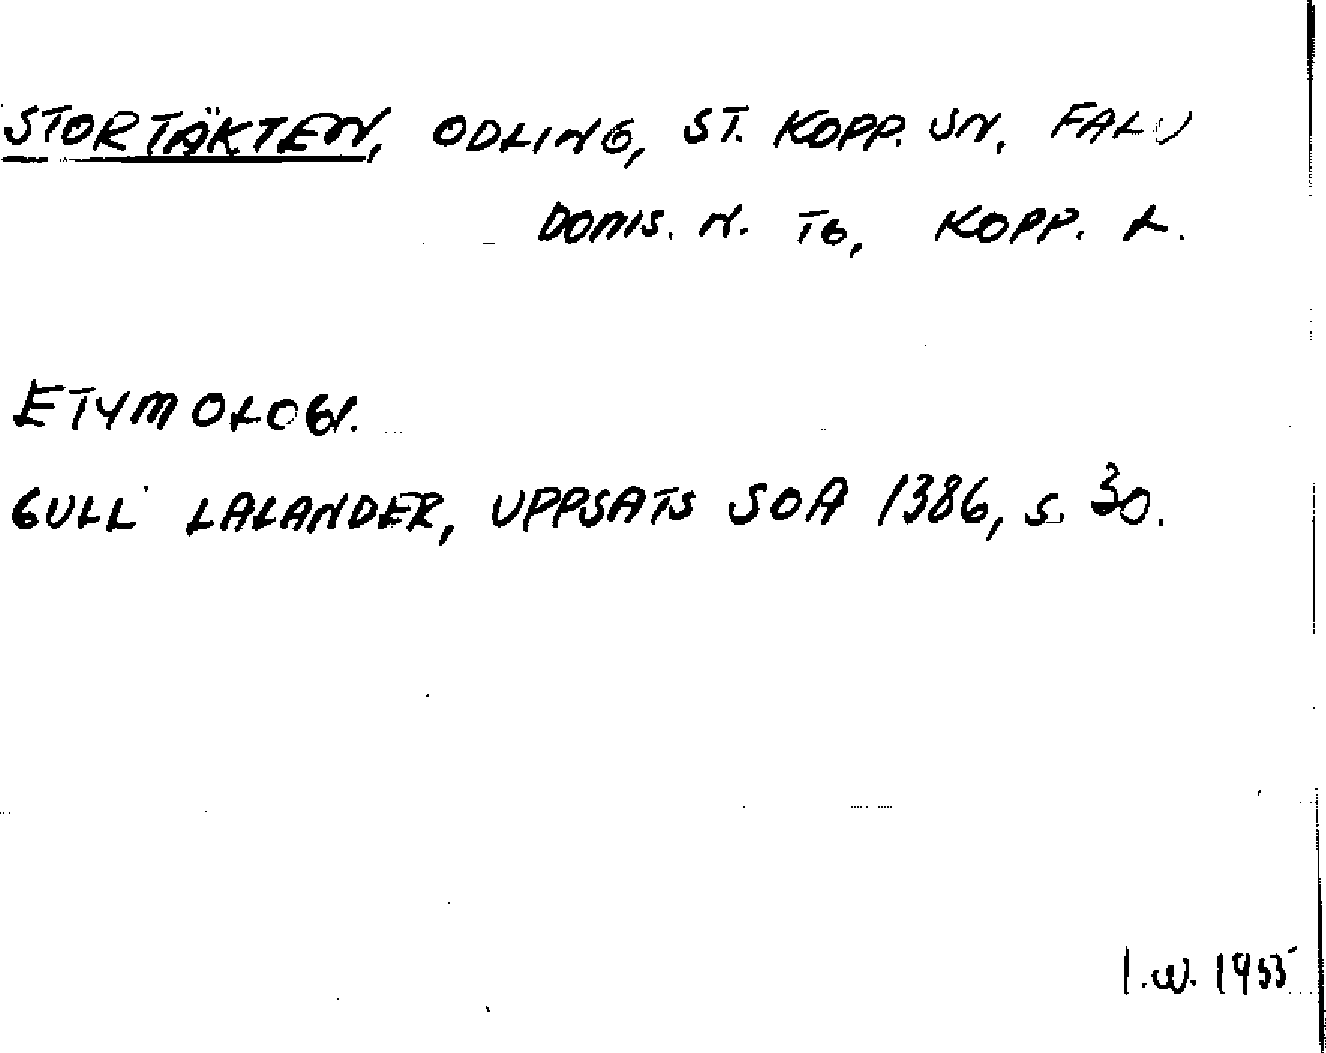 STORTÄKTEN, ODLING, ST. KOPP. SN, FALU
DOMS. N. TG, KOPP. L.
ETYMOLOGI.
GULL LALANDER, UPPSATS SOA 1386, S. 30.
I.W. 1955